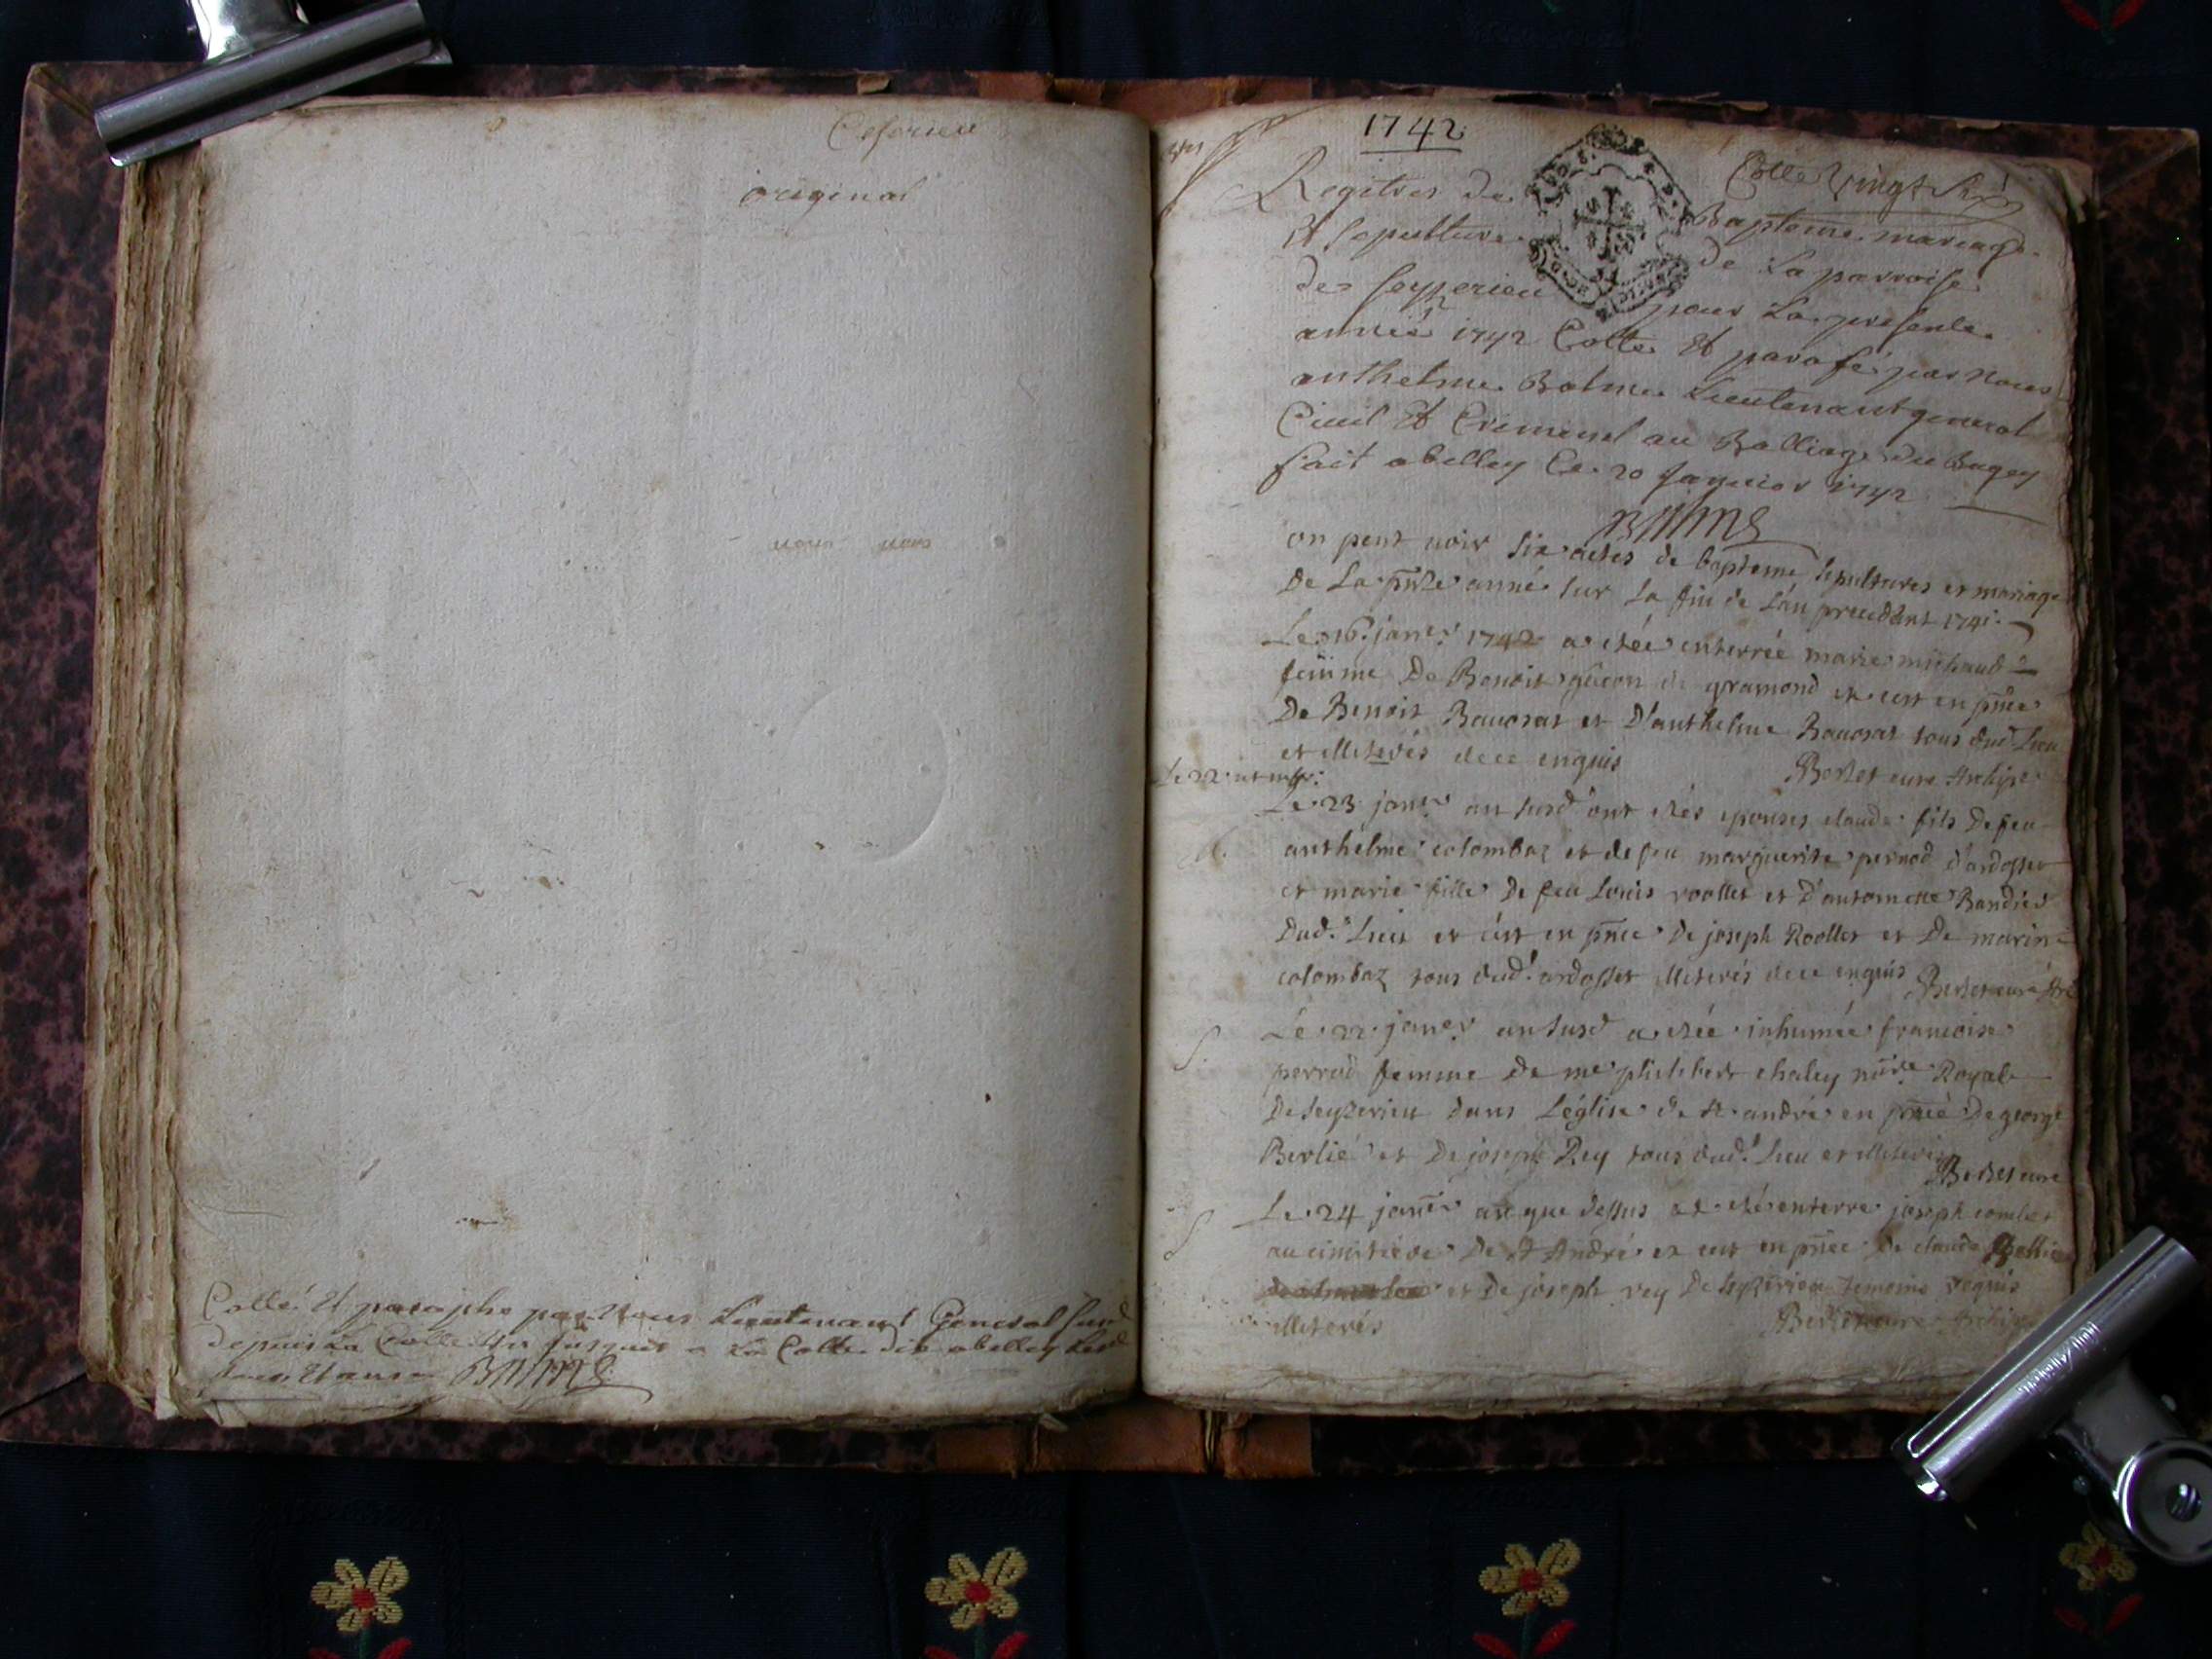 original
Cotté et paraphé par nous Lieutenant General susd
depuis La Cotte jusques a La Cotte dix abelley Lesd
jour et an BAlme
1742
Cotte Vingt Six
Registres de Bapteme mariage
Et sepulture de La parroisse
de seyzerieu pour La presente
année 1742 Cotté Et parafé par Nous
anthelme Balme Lieutenant general
Civil Et Criminel au Balliage du Bugey
fait abelley Ce 20 Janvier 1742
BAlme
on peut voir six actes de bapteme, sepultures et mariage
De La pñte année sur La fin de L'an precedant 1741.
Le 16 janer 1742 a etée enterrée marie michaud
femme De Benoit gucon de gramond et cest en pñce
De Benoit Bavosat et D'anthelme Bavosat tous dud. Lieu
et illiterés de ce enquis Berlet curé Archip.
Le 23 janer an susd ont etés epousés claude fils De feu
anthelme colombaz et de feu marguerite pernod d'ardosset
et marie fille De feu Louis roollet et D'antoinette Bandier
Dud. Lieu et c'est en pñce De joseph Roollet et De marin
colombaz tous dud. ardosset illiterés de ce enquis Berlet curé Arc
S. Le 22 janer an susd a etée inhumée francoise
perrod femme De me philibert chaley nore Royal
De seyzerieu dans L'église de St andré en pñce De george
Berlié et De joseph Rey tous dud. Lieu et illiterés
Berlet curé
S Le 24 janer an que dessus a eté enterré joseph combet
au cimitiere De St André et cest en pñce De claude
et De joseph rey De seyzerieu temoins requis
illiterés Berlet curé Archip